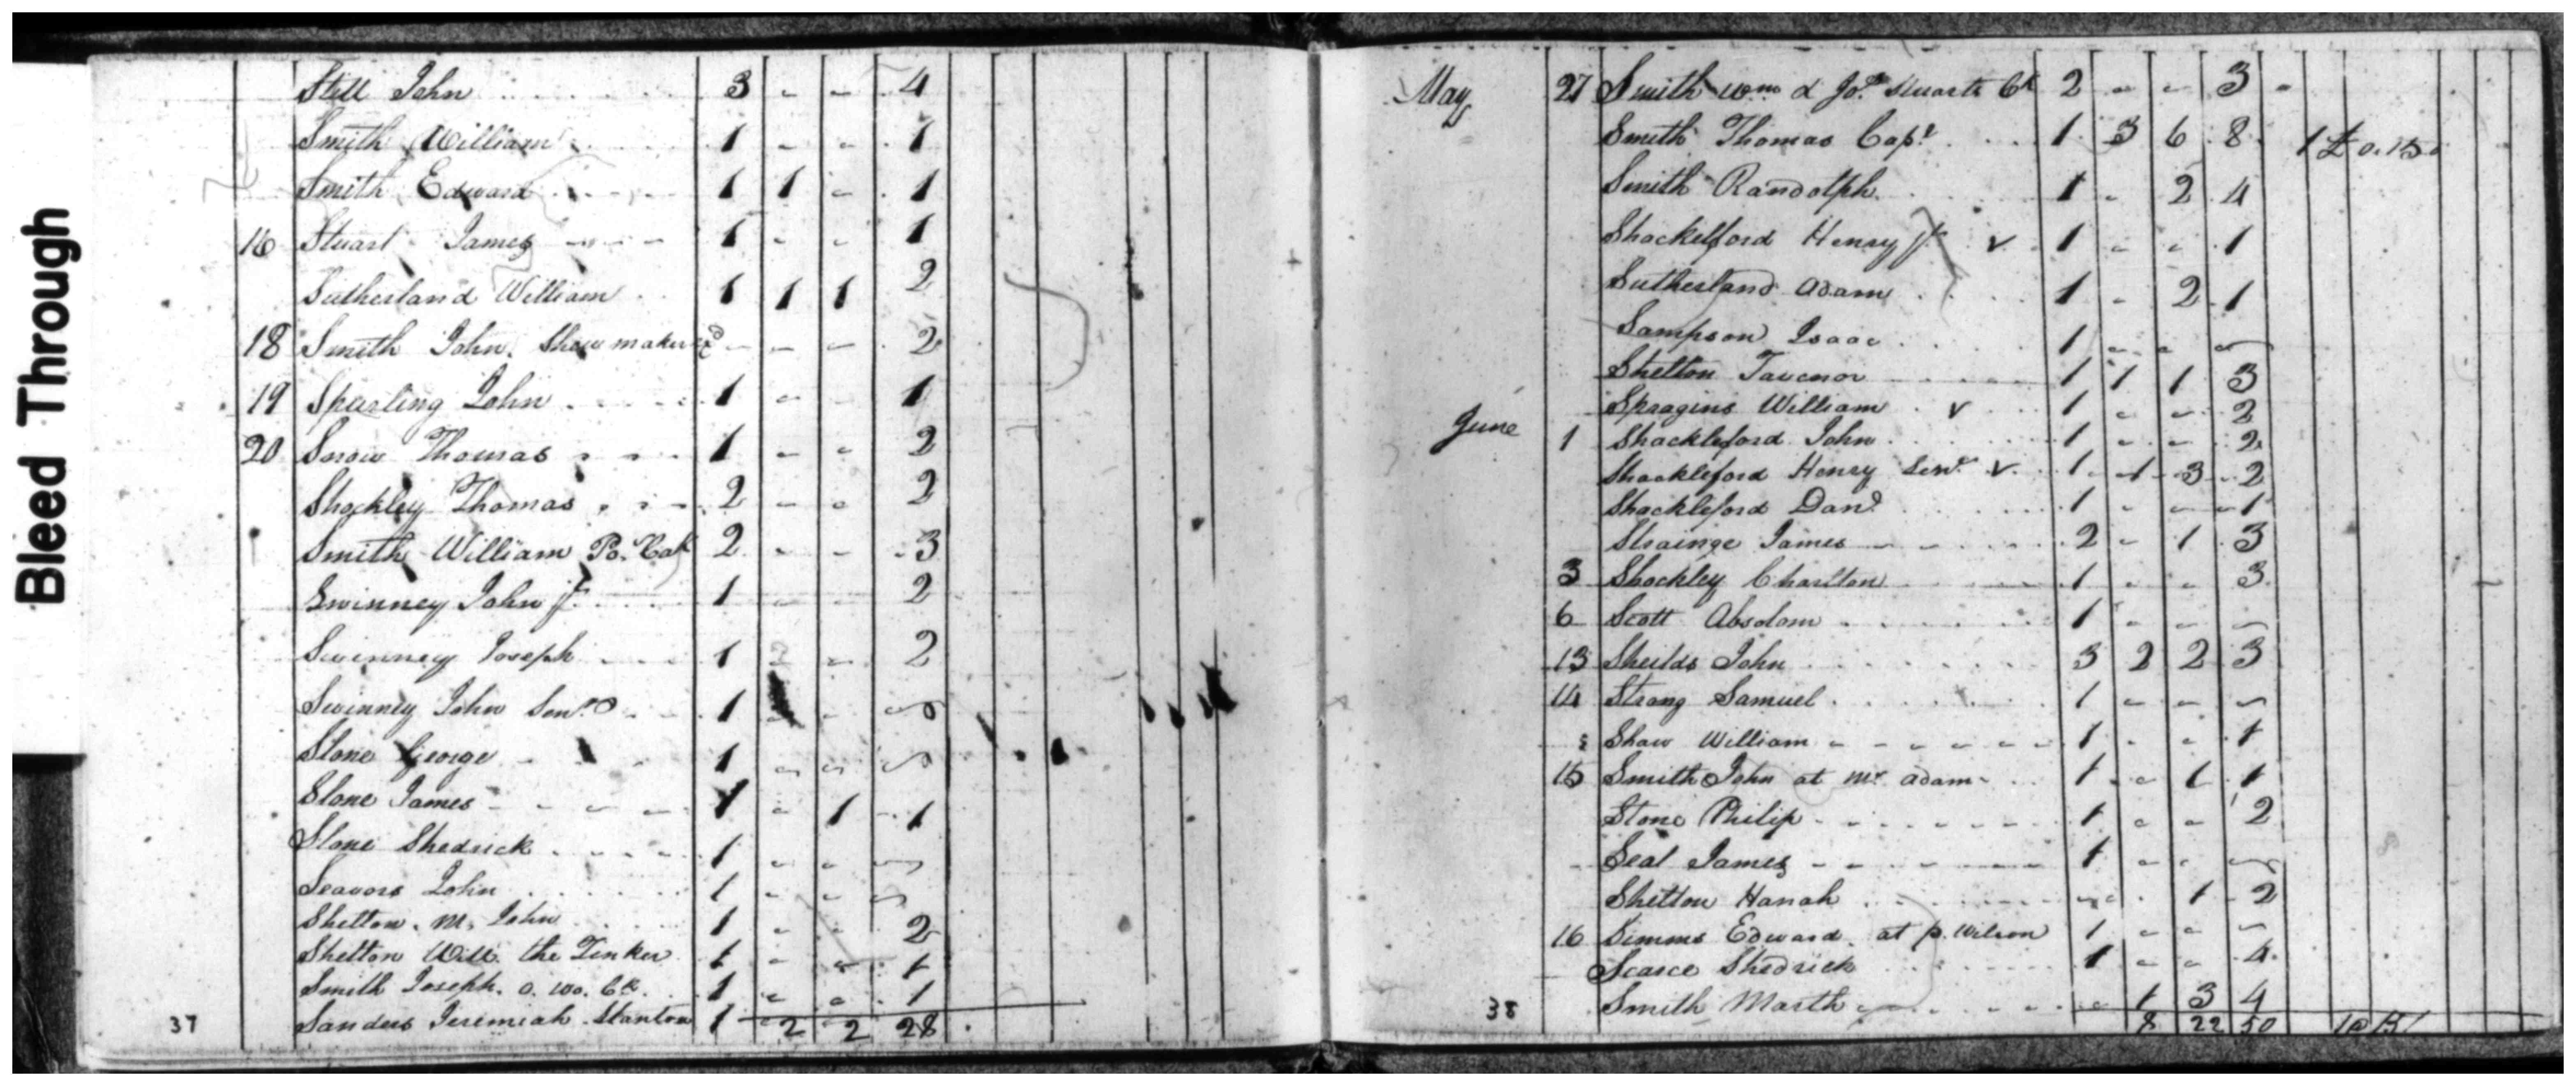 Bleed Through
Still John 3 - - 4
Smith William 1 - - 1
Smith Edward 1 1 - 1
16 Stuart James 1 - - 1
Sutherland William 1 1 1 2
18 Smith John Shoemaker - - - 2
19 Sparling John 1 - - 1
20 Snow Thomas 1 - - 2
Shockley Thomas 2 - - 2
Smith William Po. 2 - - 3
Swinney John Jr. 1 - - 2
Swinney Joseph 1 - - 2
Swinney John Senr. 1 - - -
Stone George 1 - - -
Stone James 1 - 1 1
Stone Shedrick 1 - - -
Seavors John 1 - - -
Shelton M. John 1 - - 2
Shelton Will. the Tinker 1 - - 1
Smith Joseph. 1 - - 1
Sanders Jeremiah Stanton 1
2 2 28
37
May 27 Smith Wm d Jos. Stuarts Ck 2 - - 3
Smith Thomas Capt. 1 3 6 8
Smith Randolph 1 - 2 4
Shockelford Henry Jr. v 1 - - 1
Sutherland Adam 1 - 2 1
Sampson Isaac 1 - - -
Shelton Tavenor 1 1 1 3
Spragins William v 1 - - 2
June 1 Shackleford John 1 - - 2
Shackleford Henry Senr v 1 1 3 2
Shackleford Danl. 1 - - 1
Strainge James 2 - 1 3
3 Shockley Charlton 1 - - 3
6 Scott Absolom 1 - - -
13 Sheilds John 3 2 2 3
14 Strong Samuel 1 - - -
Shaw William 1 - - 1
15 Smith John at Mr. Adams 1 - 1 1
Stone Philip 1 - - 2
Seal James 1 - - -
Shelton Hanah - - 1 2
16 Simms Edward at p. Wilson 1 - - -
Scarce Shedrick 1 - - 4
Smith Marth - 1 3 4
8 22 50
38